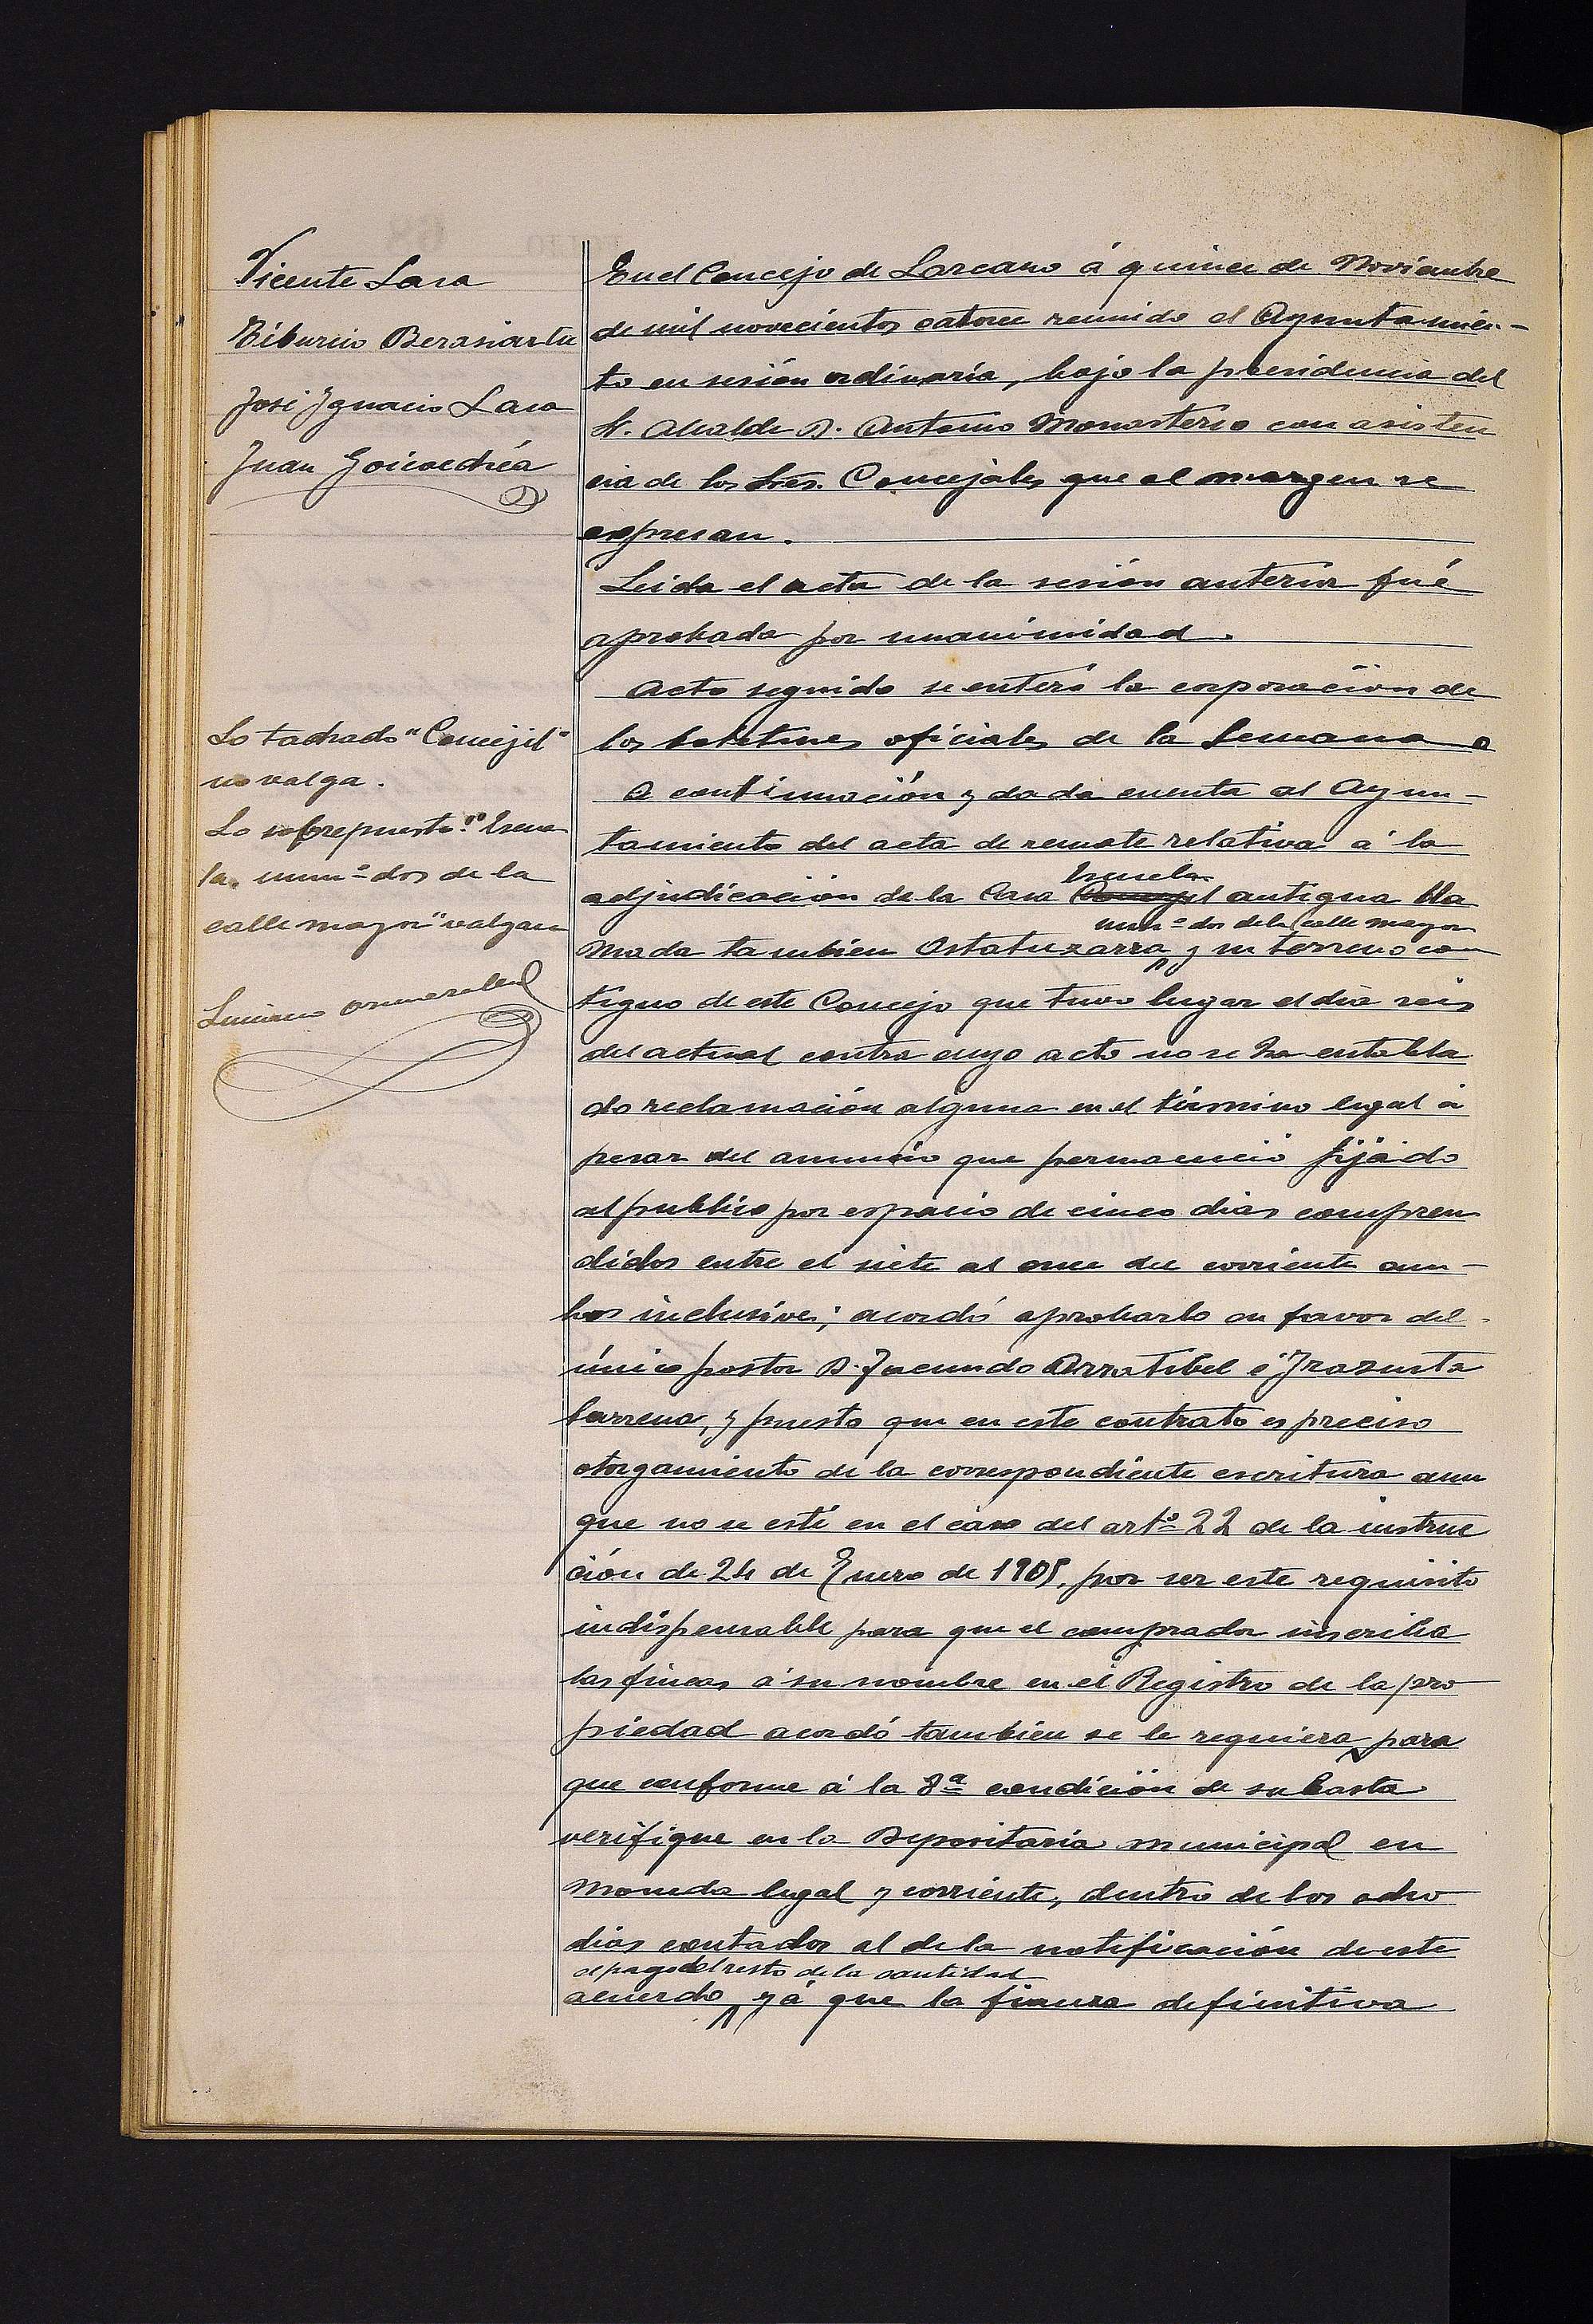 Vicente Lasa
Tiburcio Berasiartu
José Ignacio Lasa
Juan Goicoechéa
Lo tachado "Concejil"
no valga.
Lo sobrepuesto "Escue
la. numº dos de la
calle mayor" valgan
Luciano
En el Concejo de Lazcano á quince de Noviembre
de mil novecientos catorce reunido el Ayuntamien-
to en sesión ordinaria, bajo la presidencia del
Sr. Alcalde D. Antonio Monasterio con asisten
cia de los Sres. Concejales que al margen se
expresan.
Leida el acta de la sesión anterior fué
aprobada por unanimidad.
Acto seguido se enteró la corporación de
los boletines oficiales de la Semana
A continuación y dada cuenta al Ayun-
tamiento del acta de remate relativa á la
Escuela
adjudicación de la Casa Concejil antigua lla
numº dos de la calle mayor
mada tambien Ostatuzarra y su terreno con
tiguo de este Concejo que tuvo lugar el dia seis
del actual contra cuyo acto no se ha entabla
do reclamación alguna en el término legal á
pesar del anuncio que permaneció fijado
al publico por espacio de cinco dias compren
didos entre el siete al once del corriente am-
bos inclusive; acordó aprobarlo en favor del
único postor D. Facundo Arratibel é Irazusta
barrena, y puesto que en este contrato es preciso
otorgamiento de la correspondiente escritura aun
que no se esté en el caso del artº 22 de la instruc
ción de 24 de Enero de 1905, por ser este requisito
indispensable para que el comprador inscriba
las fincas á su nombre en el Registro de la pro
piedad acordó tambien se le requiera para
que conforme á la 8ª condición de subasta
verifique en la Depositaria municipal en
moneda legal y corriente, dentro de los ocho
dias contados al de la notificación de este
el pago del resto de la cantidad
acuerdo y á que la fianza definitiva